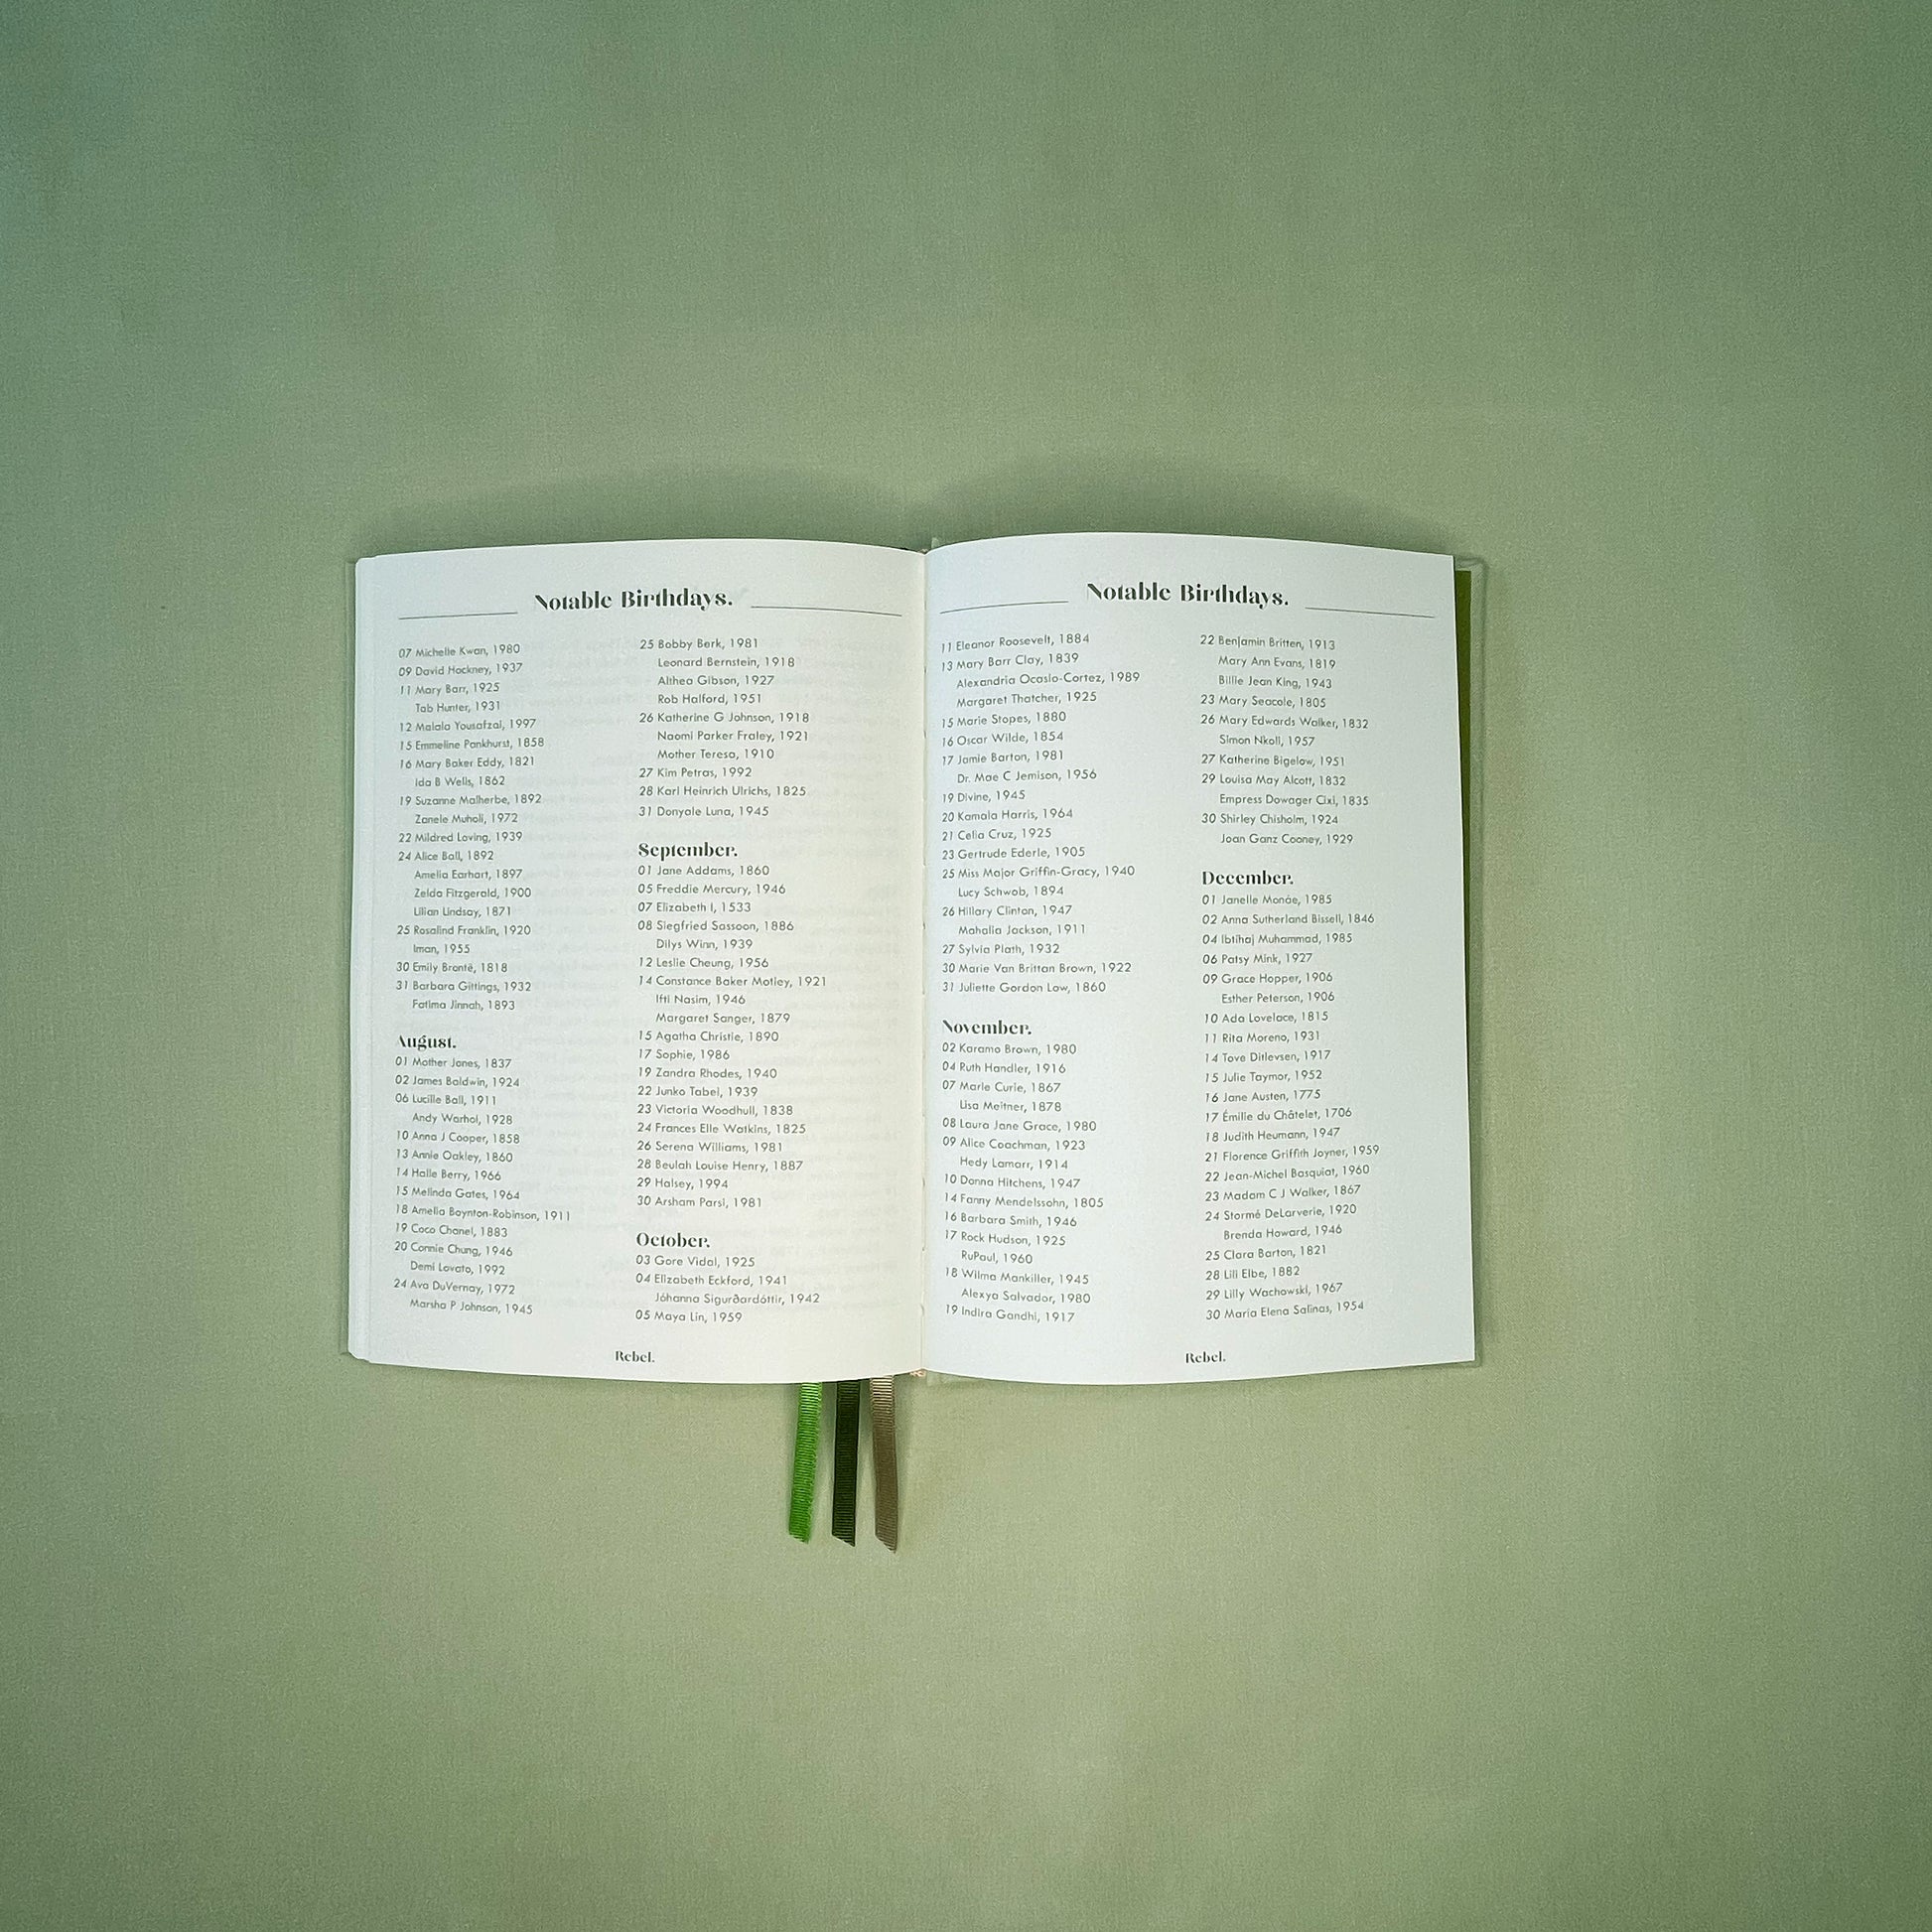 Notable Birthdays.
07 Michelle Kwan, 1980
09 David Hockney, 1937
11 Mary Barr, 1925
Tab Hunter, 1931
12 Malala Yousafzai, 1997
15 Emmeline Pankhurst, 1858
16 Mary Baker Eddy, 1821
Ida B Wells, 1862
19 Suzanne Malherbe, 1892
Zanele Muholi, 1972
22 Mildred Loving, 1939
24 Alice Ball, 1892
Amelia Earhart, 1897
Zelda Fitzgerald, 1900
Lilian Lindsay, 1871
25 Rosalind Franklin, 1920
Iman, 1955
30 Emily Brontë, 1818
31 Barbara Gittings, 1932
Fatima Jinnah, 1893
August.
01 Mother Jones, 1837
02 James Baldwin, 1924
06 Lucille Ball, 1911
Andy Warhol, 1928
10 Anna J Cooper, 1858
13 Annie Oakley, 1860
14 Halle Berry, 1966
15 Melinda Gates, 1964
18 Amelia Boynton-Robinson, 1911
19 Coco Chanel, 1883
20 Connie Chung, 1946
Demi Lovato, 1992
24 Ava DuVernay, 1972
Marsha P Johnson, 1945
25 Bobby Berk, 1981
Leonard Bernstein, 1918
Althea Gibson, 1927
Rob Halford, 1951
26 Katherine G Johnson, 1918
Naomi Parker Fraley, 1921
Mother Teresa, 1910
27 Kim Petras, 1992
28 Karl Heinrich Ulrichs, 1825
31 Donyale Luna, 1945
September.
01 Jane Addams, 1860
05 Freddie Mercury, 1946
07 Elizabeth I, 1533
08 Siegfried Sassoon, 1886
Dilys Winn, 1939
12 Leslie Cheung, 1956
14 Constance Baker Motley, 1921
Ifti Nasim, 1946
Margaret Sanger, 1879
15 Agatha Christie, 1890
17 Sophie, 1986
19 Zandra Rhodes, 1940
22 Junko Tabei, 1939
23 Victoria Woodhull, 1838
24 Frances Elle Watkins, 1825
26 Serena Williams, 1981
28 Beulah Louise Henry, 1887
29 Halsey, 1994
30 Arsham Parsi, 1981
October.
03 Gore Vidal, 1925
04 Elizabeth Eckford, 1941
Jóhanna Sigurðardóttir, 1942
05 Maya Lin, 1959
Rebel.
Notable Birthdays.
11 Eleanor Roosevelt, 1884
13 Mary Barr Clay, 1839
Alexandria Ocasio-Cortez, 1989
Margaret Thatcher, 1925
15 Marie Stopes, 1880
16 Oscar Wilde, 1854
17 Jamie Barton, 1981
Dr. Mae C Jemison, 1956
19 Divine, 1945
20 Kamala Harris, 1964
21 Celia Cruz, 1925
23 Gertrude Ederle, 1905
25 Miss Major Griffin-Gracy, 1940
Lucy Schwob, 1894
26 Hillary Clinton, 1947
Mahalia Jackson, 1911
27 Sylvia Plath, 1932
30 Marie Van Brittan Brown, 1922
31 Juliette Gordon Low, 1860
November.
02 Karamo Brown, 1980
04 Ruth Handler, 1916
07 Marie Curie, 1867
Lisa Meitner, 1878
08 Laura Jane Grace, 1980
09 Alice Coachman, 1923
Hedy Lamarr, 1914
10 Donna Hitchens, 1947
14 Fanny Mendelssohn, 1805
16 Barbara Smith, 1946
17 Rock Hudson, 1925
RuPaul, 1960
18 Wilma Mankiller, 1945
Alexya Salvador, 1980
19 Indira Gandhi, 1917
22 Benjamin Britten, 1913
Mary Ann Evans, 1819
Billie Jean King, 1943
23 Mary Seacole, 1805
26 Mary Edwards Walker, 1832
Simon Nkoli, 1957
27 Katherine Bigelow, 1951
29 Louisa May Alcott, 1832
Empress Dowager Cixi, 1835
30 Shirley Chisholm, 1924
Joan Ganz Cooney, 1929
December.
01 Janelle Monáe, 1985
02 Anna Sutherland Bissell, 1846
04 Ibtihaj Muhammad, 1985
06 Patsy Mink, 1927
09 Grace Hopper, 1906
Esther Peterson, 1906
10 Ada Lovelace, 1815
11 Rita Moreno, 1931
14 Tove Ditlevsen, 1917
15 Julie Taymor, 1952
16 Jane Austen, 1775
17 Émilie du Châtelet, 1706
18 Judith Heumann, 1947
21 Florence Griffith Joyner, 1959
22 Jean-Michel Basquiat, 1960
23 Madam C J Walker, 1867
24 Stormé DeLarverie, 1920
Brenda Howard, 1946
25 Clara Barton, 1821
28 Lili Elbe, 1882
29 Lilly Wachowski, 1967
30 Maria Elena Salinas, 1954
Rebel.